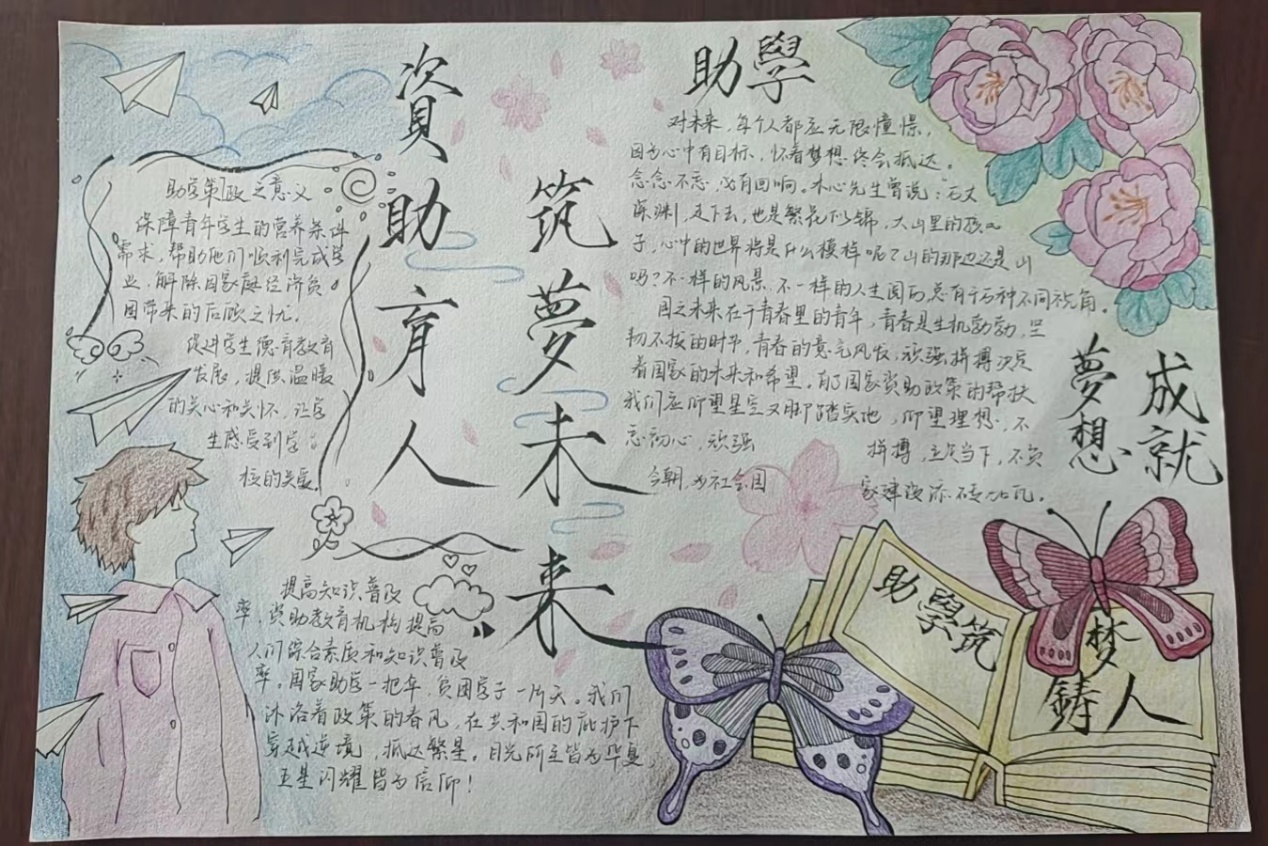 資助育人
筑夢未来
助學
对未来，每个人都应无限憧憬，
因为心中有目标，怀着梦想终会抵达。
念念不忘，必有回响。冰心先生曾说：万丈
深渊，走下去，也是繁花似锦，大山里的孩
子，心中的世界将是什么模样呢？山的那边还是山
吗？不一样的风景，不一样的人生图画总有千百种不同视角。
国之未来在于青春里的青年，青春是生机勃勃，坚
韧不拔的时节，青春的意气风发，顽强拼搏决定
着国家的未来和希望。有了国家资助政策的帮扶
我们应仰望星空又脚踏实地，仰望理想，不
忘初心，顽强 拼搏，立足当下，不负
今朝，为社会国 家建设添砖加瓦。
成就
夢想
助学政策之意义
保障青年学生的营养条件
需求，帮助他们顺利完成学
业，解除因家庭经济负
困带来的后顾之忧。
促进学生德育教育
发展，提供温暖
的关心和关怀，让学
生感受到学
校的关爱。
提高知识普及
率，资助教育机构提高
人们综合素质和知识普及
率。国家助学一把伞，贫困学子一片天。我们
沐浴着政策的春风，在共和国的庇护下
穿越逆境，抵达繁星。目光所至皆为华夏，
五星闪耀皆为信仰！
助學筑
梦
鑄人